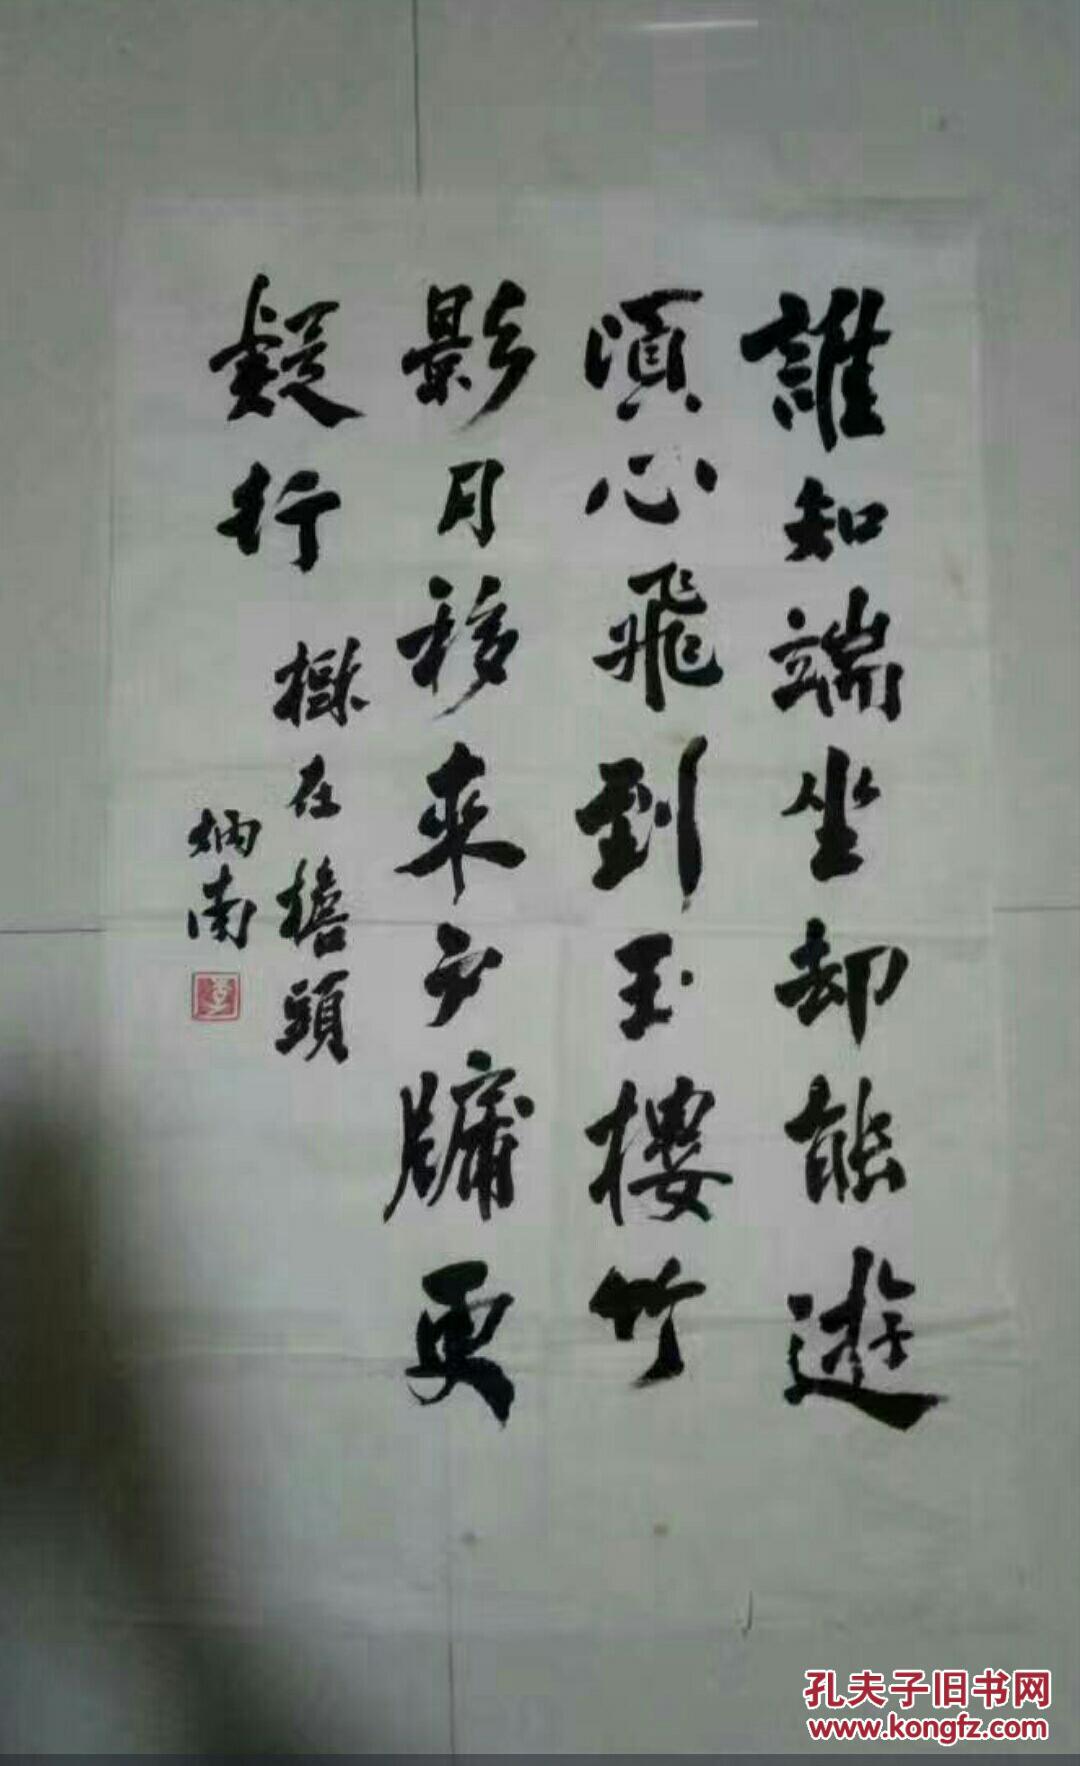 誰知端坐却能遊
湏心飛到玉樓竹
影月移來戶牖更
疑行
樹在檐頭
炳南
孔夫子旧书网
www.kongfz.com